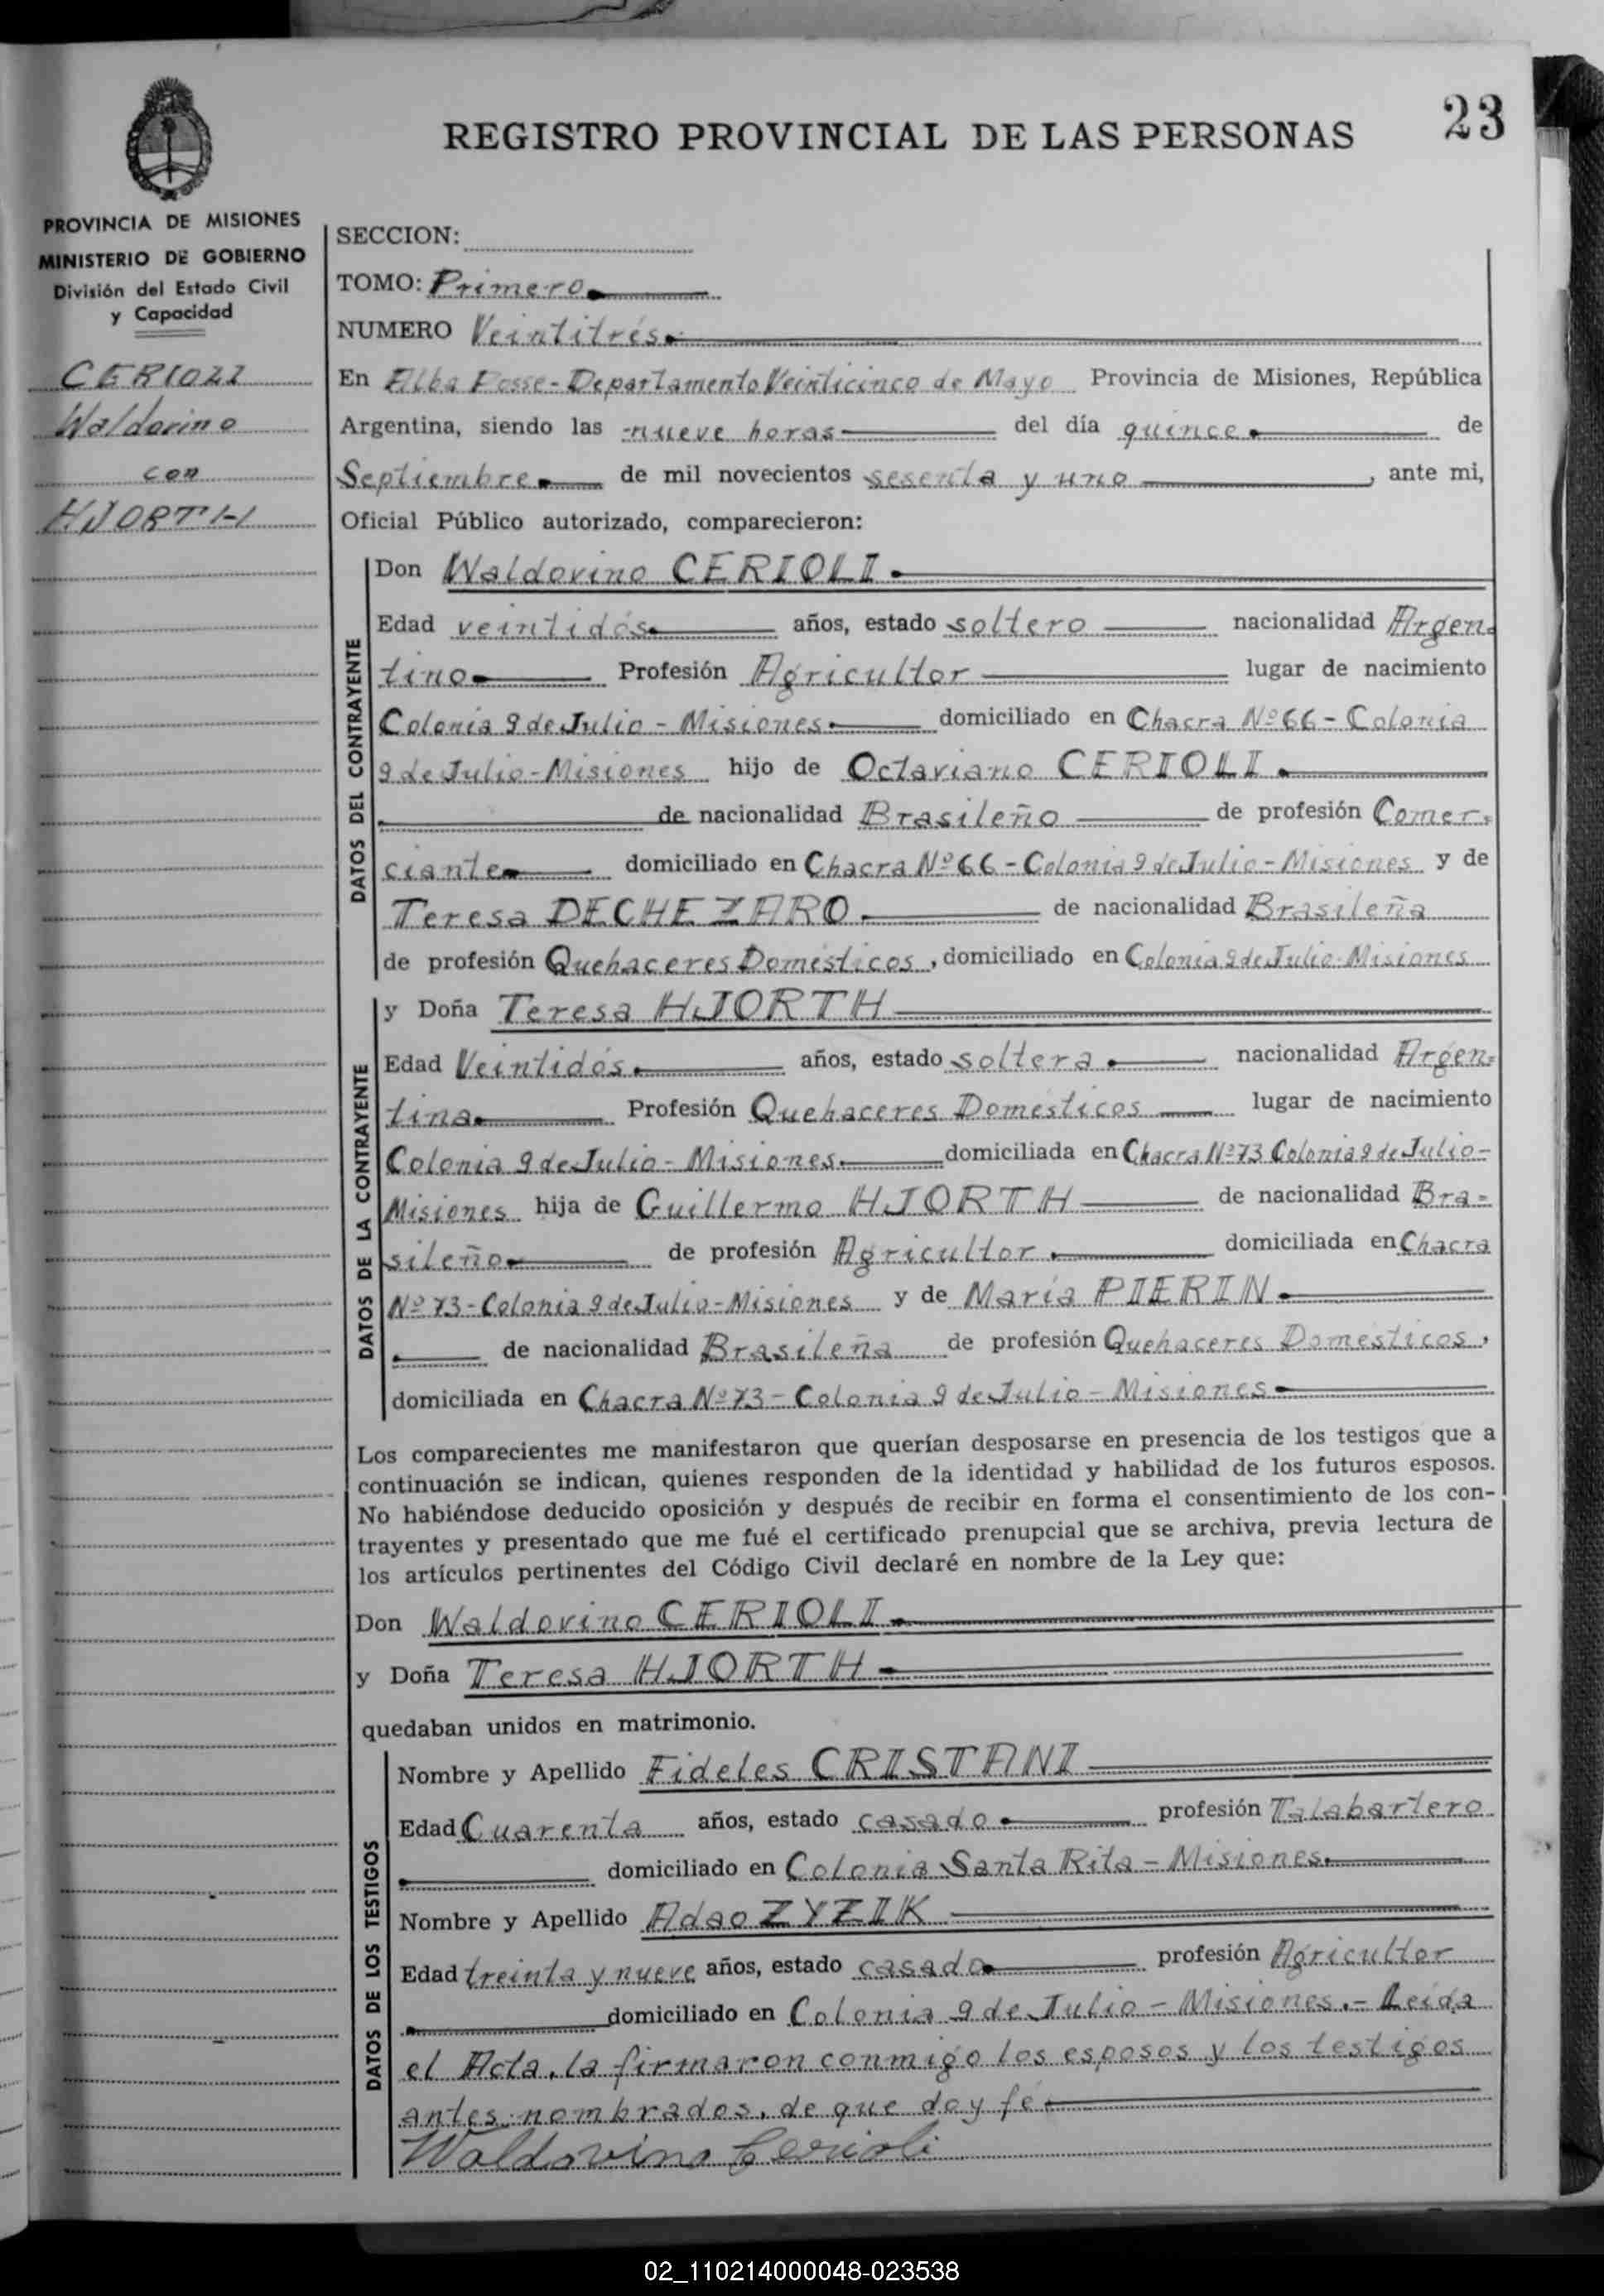 23
REGISTRO PROVINCIAL DE LAS PERSONAS
PROVINCIA DE MISIONES
MINISTERIO DE GOBIERNO
División del Estado Civil
y Capacidad
CERIOLI
Waldovino
con
HJORTH
SECCION:
TOMO: Primero
NUMERO Veintitrés
En Alba Posse - Departamento Veinticinco de Mayo Provincia de Misiones, República
Argentina, siendo las nueve horas del día quince de
Septiembre de mil novecientos sesenta y uno, ante mi,
Oficial Público autorizado, comparecieron:
DATOS DEL CONTRAYENTE
Don Waldovino CERIOLI
Edad veintidós años, estado soltero nacionalidad Argen-
tino Profesión Agricultor lugar de nacimiento
Colonia 9 de Julio - Misiones domiciliado en Chacra Nº 66 - Colonia
9 de Julio - Misiones hijo de Octaviano CERIOLI
de nacionalidad Brasileño de profesión Comer-
ciante domiciliado en Chacra Nº 66 - Colonia 9 de Julio - Misiones y de
Teresa DECHEZARO de nacionalidad Brasileña
de profesión Quehaceres Domésticos, domiciliado en Colonia 9 de Julio - Misiones
DATOS DE LA CONTRAYENTE
y Doña Teresa HJORTH
Edad Veintidós años, estado soltera nacionalidad Argen-
tina Profesión Quehaceres Domésticos lugar de nacimiento
Colonia 9 de Julio - Misiones domiciliada en Chacra Nº 73 Colonia 9 de Julio -
Misiones hija de Guillermo HJORTH de nacionalidad Bra-
sileño de profesión Agricultor domiciliada en Chacra
Nº 73 - Colonia 9 de Julio - Misiones y de María PIERIN
de nacionalidad Brasileña de profesión Quehaceres Domésticos,
domiciliada en Chacra Nº 73 - Colonia 9 de Julio - Misiones
Los comparecientes me manifestaron que querían desposarse en presencia de los testigos que a
continuación se indican, quienes responden de la identidad y habilidad de los futuros esposos.
No habiéndose deducido oposición y después de recibir en forma el consentimiento de los con-
trayentes y presentado que me fué el certificado prenupcial que se archiva, previa lectura de
los artículos pertinentes del Código Civil declaré en nombre de la Ley que:
Don Waldovino CERIOLI
y Doña Teresa HJORTH
quedaban unidos en matrimonio.
DATOS DE LOS TESTIGOS
Nombre y Apellido Fideles CRISTANI
Edad Cuarenta años, estado casado profesión Talabartero
domiciliado en Colonia Santa Rita - Misiones
Nombre y Apellido Adao ZYZIK
Edad treinta y nueve años, estado casado profesión Agricultor
domiciliado en Colonia 9 de Julio - Misiones. - Leída
el Acta, la firmaron conmigo los esposos y los testigos
antes nombrados, de que doy fé
Waldovino Cerioli
02_110214000048-023538